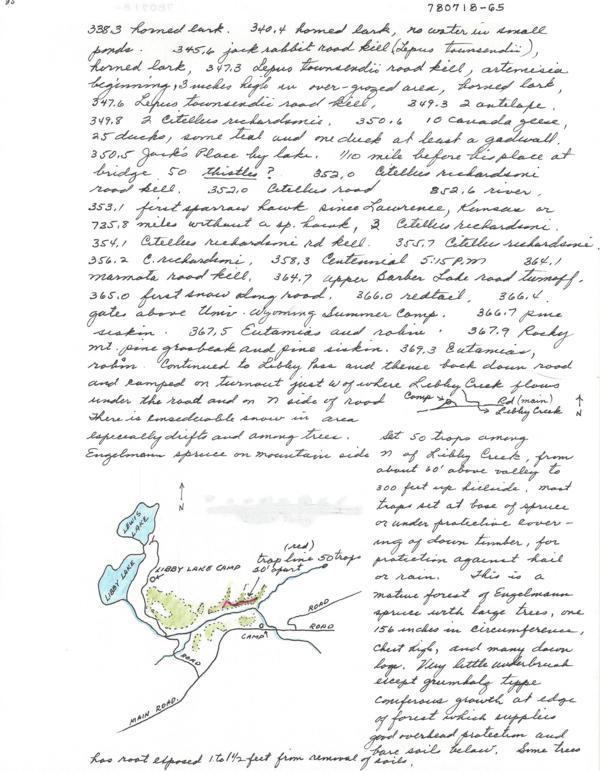 780718-65
338.3 horned lark. 340.4 horned lark, no water in small
ponds. 345.6 jack rabbit road kill (Lepus townsendii),
horned lark, 347.3 Lepus townsendii road kill, artemisia
beginning, 3 inches high in over-grazed area, horned lark,
347.6 Lepus townsendii road kill. 349.3 2 antelope.
349.8 2 Citellus richardsonii. 350.6 10 Canada geese,
25 ducks, some teal and one duck at least a gadwall.
350.5 Jack's Place by lake. 1/10 mile before his place at
bridge 50 thistles? 352.0 Citellus richardsoni
road kill. 352.0 Citellus road 852.6 river.
353.1 first sparrow hawk since Lawrence, Kansas or
735.8 miles without a sp. hawk, 2 Citellus richardsoni.
354.1 Citellus richardsoni rd kill. 355.7 Citellus richardsoni
356.2 C. richardsoni, 358.3 Centennial 5:15 P.M 364.1
marmota road kill. 364.7 upper Barber Lake road turnoff.
365.0 first snow along road. 366.0 redtail, 366.4
gates above Univ. Wyoming Summer Camp. 366.7 pine
siskin. 367.5 Eutamias and robin. 367.9 Rocky
mt. pine grosbeak and pine siskin. 369.3 Eutamias,
robin. Continued to Libby Pass and thence back down road
and camped on turnout just W of where Libby Creek flows
under the road and on N side of road
Camp Rd (main)
Libby Creek
N
There is considerable snow in area
especially drifts and among trees. Set 50 traps among
Engelmann spruce on mountain side N of Libby Creek, from
about 60' above valley to
300 feet up hillside. most
traps set at base of spruce
or under protective cover-
ing of down timber, for
protection against hail
or rain. This is a
mature forest of Engelmann
spruce with large trees, one
156 inches in circumference,
chest high, and many down
logs. Very little underbrush
except grumholz type
coniferous growth at edge
of forest which supplies
good overhead protection and
bare soils below. Some trees
has root exposed 1 to 1½ feet from removal of soils.
N
LEWIS
LAKE
LIBBY LAKE
LIBBY LAKE CAMP
(red)
trap line 50 traps
20' apart
ROAD
ROAD
CAMP
ROAD
MAIN ROAD